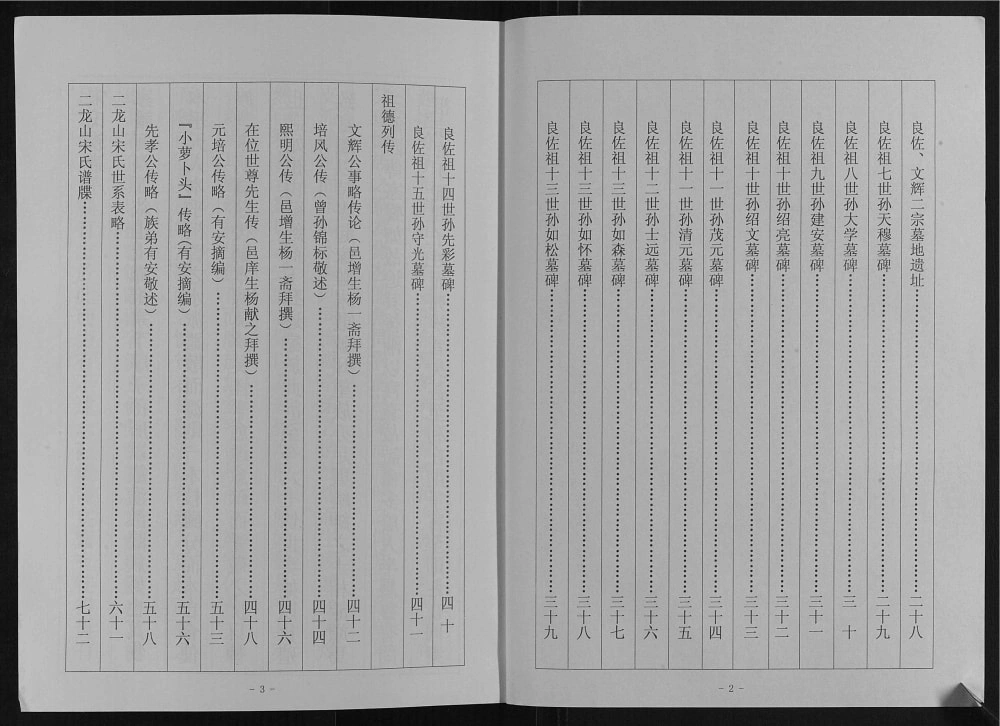 良佐、文辉二宗墓地遗址……二十八
良佐祖七世孙天穆墓碑……二十九
良佐祖八世孙大学墓碑……三十
良佐祖九世孙建安墓碑……三十一
良佐祖十世孙绍亮墓碑……三十二
良佐祖十世孙绍文墓碑……三十三
良佐祖十一世孙茂元墓碑……三十四
良佐祖十一世孙清元墓碑……三十五
良佐祖十二世孙士远墓碑……三十六
良佐祖十三世孙如森墓碑……三十七
良佐祖十三世孙如怀墓碑……三十八
良佐祖十三世孙如松墓碑……三十九
- 2 -
良佐祖十四世孙先彩墓碑……四十
良佐祖十五世孙守光墓碑……四十一
祖德列传
文辉公事略传论（邑增生杨一斋拜撰）……四十二
培风公传（曾孙锦标敬述）……四十四
熙明公传（邑增生杨一斋拜撰）……四十六
在位世尊先生传（邑庠生杨献之拜撰）……四十八
元培公传略（有安摘编）……五十三
『小萝卜头』传略(有安摘编）……五十六
先孝公传略（族弟有安敬述）……五十八
二龙山宋氏世系表略……六十一
二龙山宋氏谱牒……七十二
- 3 -